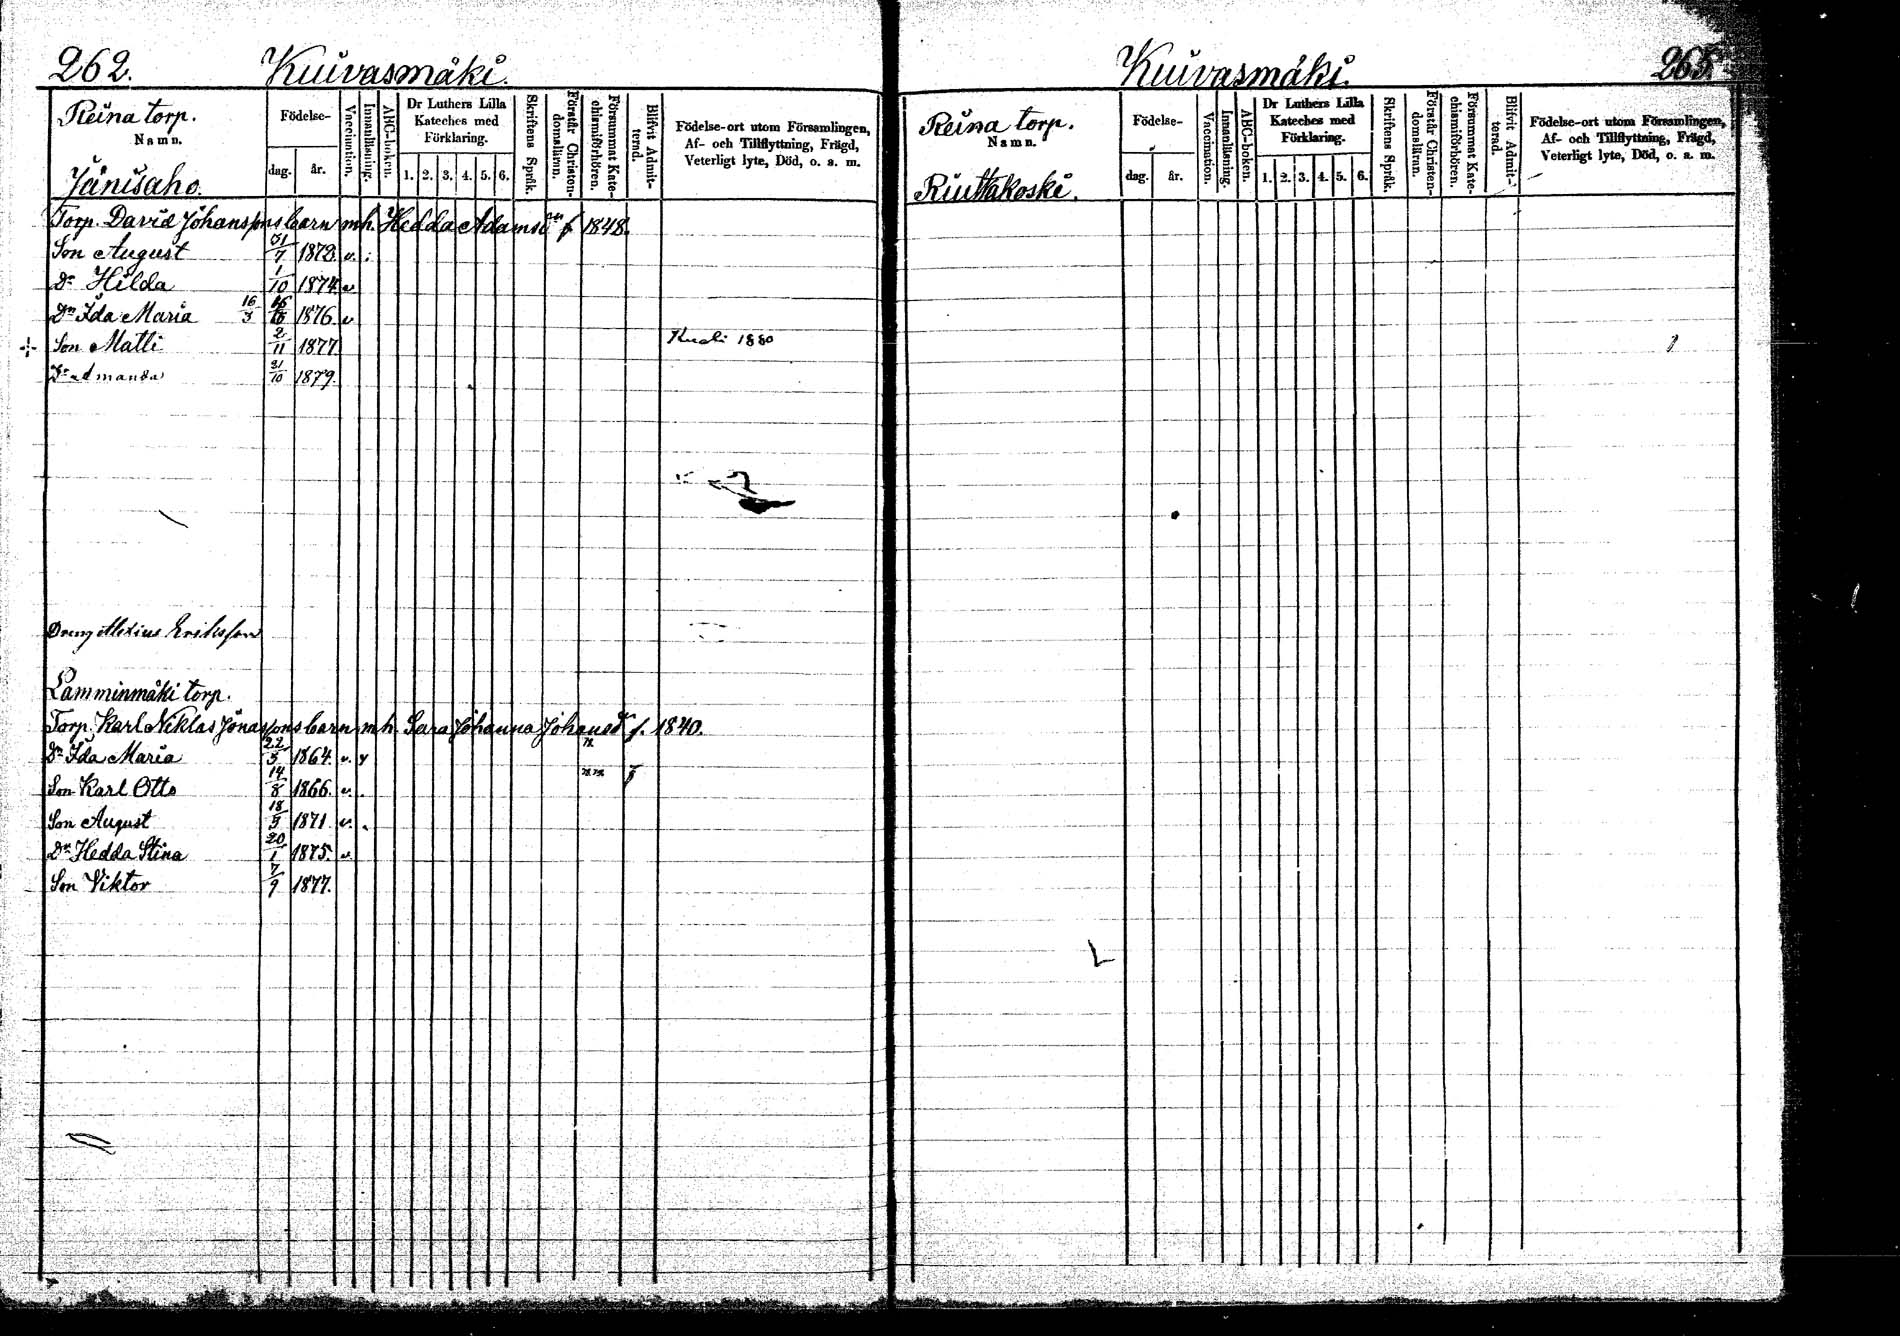 262. Kuivasmäki.
Reina torp.
Namn.
Jänisaho.
Födelse-
dag. år.
Vaccination.
Innanläsning.
ABC-boken.
Dr Luthers Lilla
Kateches med
Förklaring.
1. 2. 3. 4. 5. 6.
Skriftens Språk.
Förstår Christen-
domsläran.
Försummat Kate-
chismiförhören.
Blifvit Admit-
terad.
Födelse-ort utom Församlingen,
Af- och Tillflyttning, Frägd,
Veterligt lyte, Död, o. s. m.
Torp. David Johanssons barn mh. Hedda Adamsd f 1848.
Son August 31/7 1872. v.
Dr Hilda 1/10 1874 v
Dr Ida Maria 16/3 1876. v
Son Matti 2/11 1877 1880
Dr Amanda 31/10 1879.
Dreng Alexius Eriksson
Lamminmäki torp.
Torp. Karl Niklas Jonassons barn mh. Sara Johanna Johansdr f. 1840.
Dr Ida Maria 22/5 1864. v. y
Son Karl Otto 14/8 1866. v.
Son August 18/5 1871 v.
Dr Hedda Stina 20/1 1875. v.
Son Viktor 7/9 1877.
Kuivasmäki. 263.
Reina torp.
Namn.
Riuttakoski.
Födelse-
dag. år.
Vaccination.
Innanläsning.
ABC-boken.
Dr Luthers Lilla
Kateches med
Förklaring.
1. 2. 3. 4. 5. 6.
Skriftens Språk.
Förstår Christen-
domsläran.
Försummat Kate-
chismiförhören.
Blifvit Admit-
terad.
Födelse-ort utom Församlingen,
Af- och Tillflyttning, Frägd,
Veterligt lyte, Död, o. s. m.